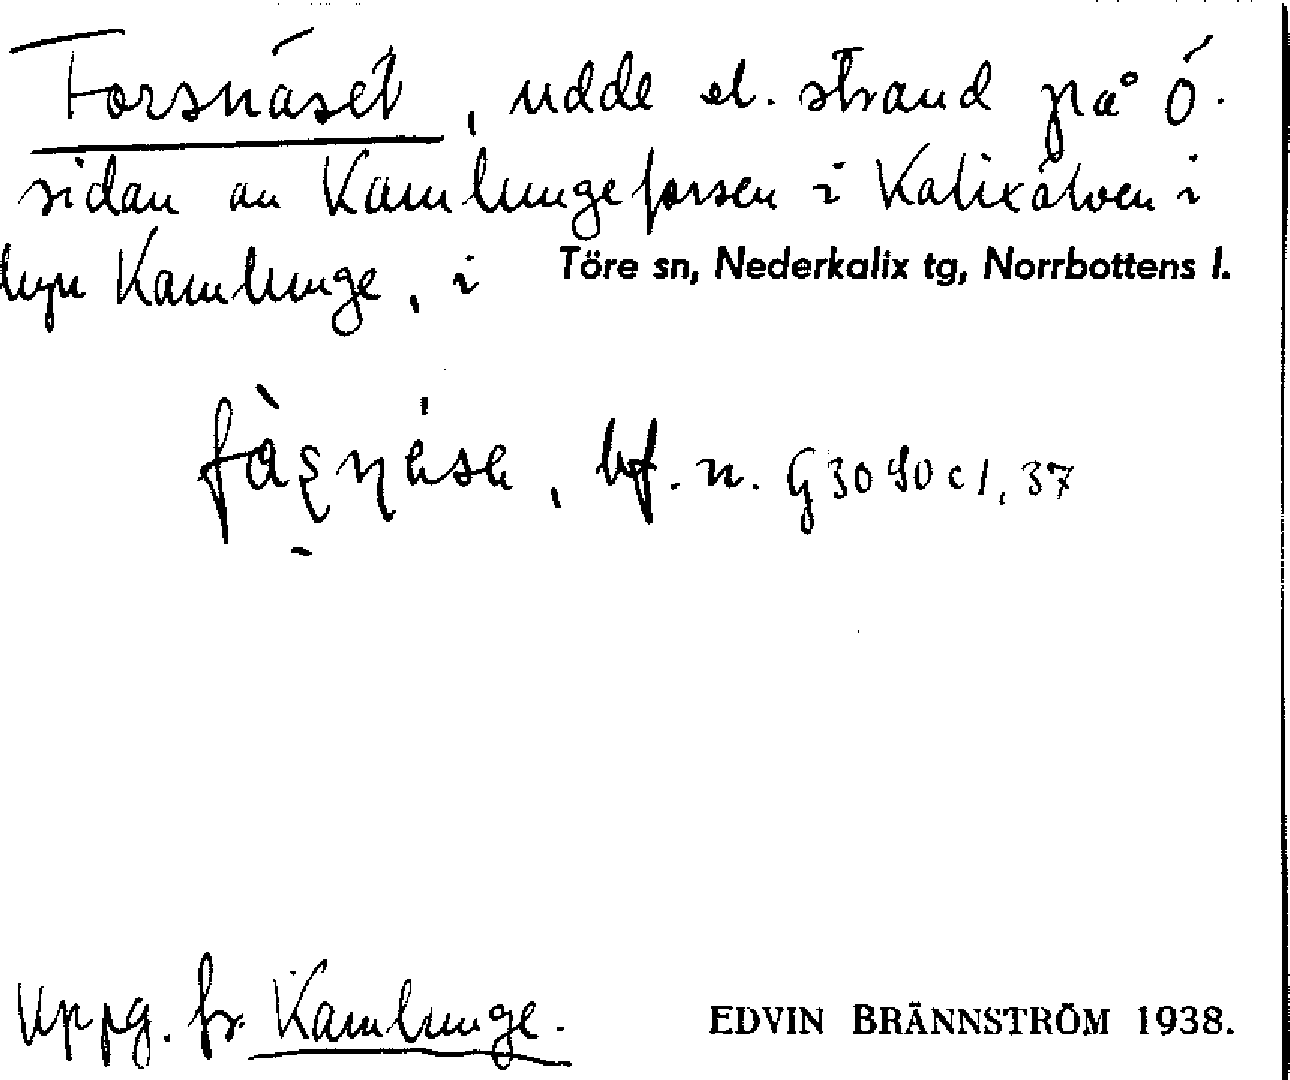 Forsnäset, udde el. strand på ö.
sidan av Kamlungeforsen i Kalixälven i
byn Kamlunge, i Töre sn, Nederkalix tg, Norrbottens l.
bf. n. G 3090 c1, 37
Uppg. fr. Kamlunge. EDVIN BRÄNNSTRÖM 1938.